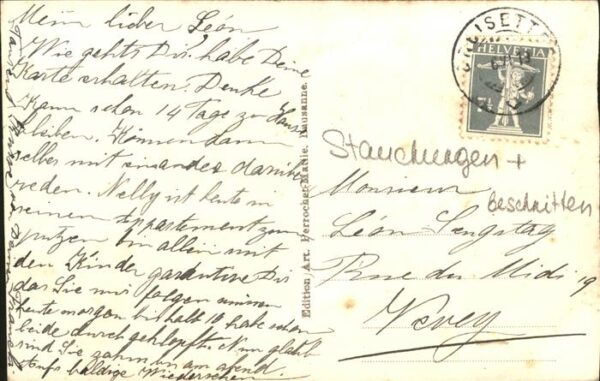 Mein lieber Léon
Wie gehts Dir? habe Deine
Karte erhalten. Denke
kann schon 14 Tage zu Haus
bleiben. Können dann
selber mit einander darüber
reden. Nelly ist heute in
seinem Appartement zum
putzen bin allein mit
den Kinder garantiere Dir
das Sie mir folgen müssen
heute morgen bis halb 10 habe schon
beide durchgeklopft. Nun glaub
sind Sie zahm bis am abend.
baldige Wiedersehen
Edition Art. Perrochet-Matile, Lausanne.
CROISETTE
HELVETIA
7½
Stauchungen +
beschnitten
Monsieur
Léon Sengstag
Rue du Midi 19
Vevey